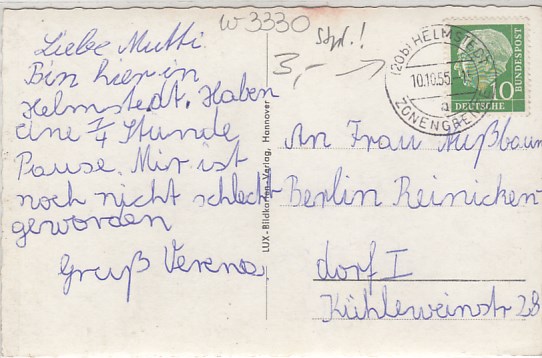 w3330
Stpl.!
3,-
Liebe Mutti.
Bin hier in
Helmstedt. Haben
eine 3/4 Stunde
Pause. Mir ist
noch nicht schlecht
geworden
Gruß Verena.
LUX-Bildkarten-Verlag, Hannover
(20b) HELMSTEDT
10.10.55
a
ZONENGRE
10
DEUTSCHE
BUNDESPOST
An Frau Nußbaum
Berlin Reinicken-
dorf I
Kühleweinstr 28